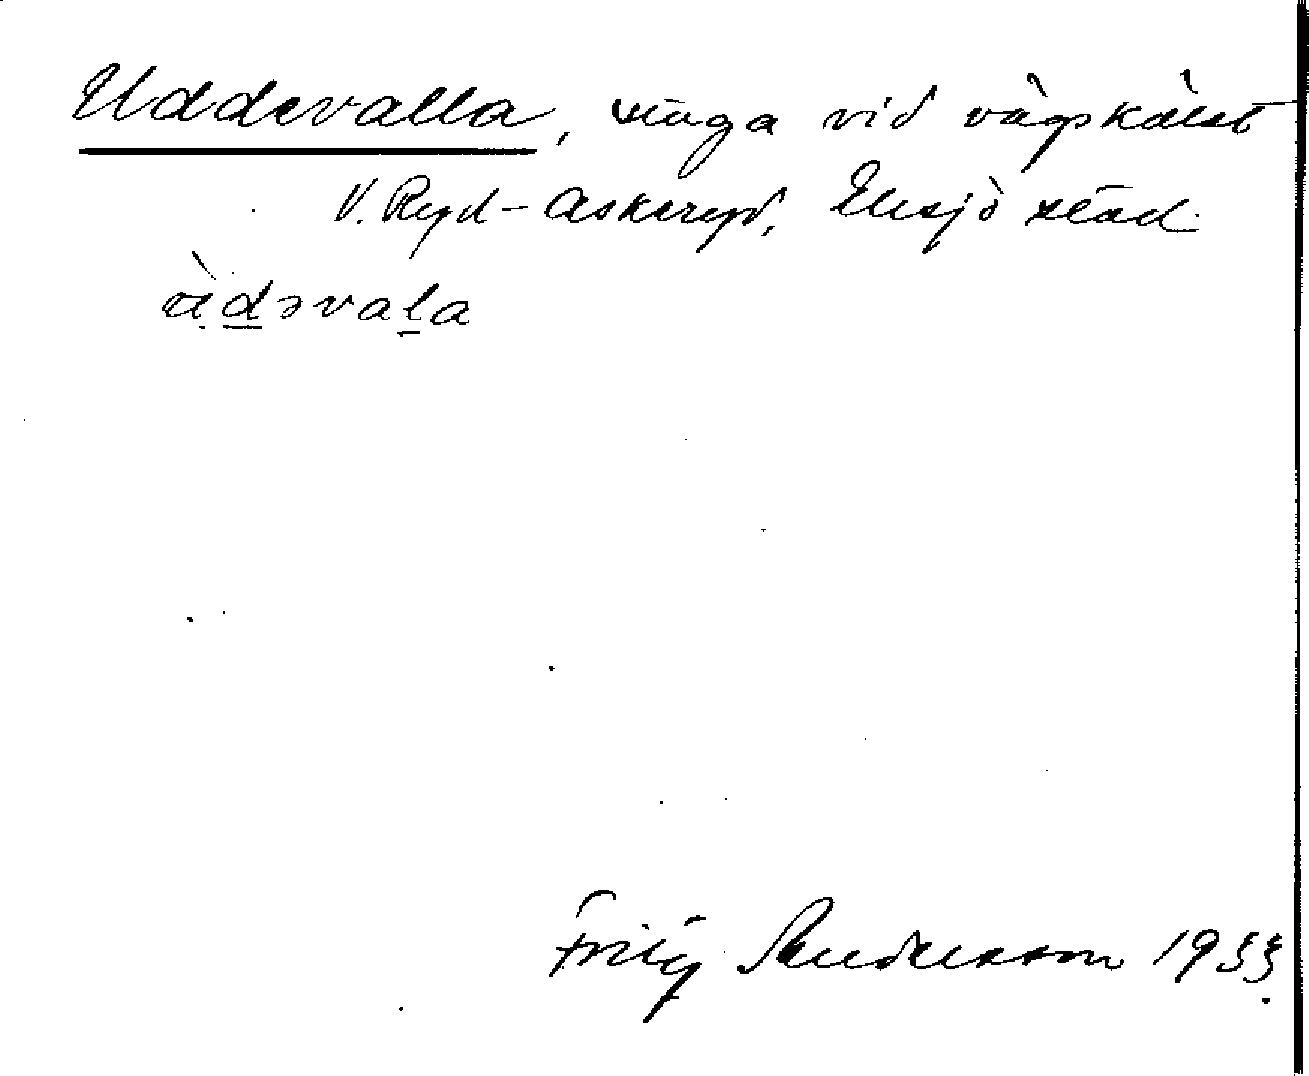 Uddevalla, stuga vid vägskälet
V. Ryd - Askeryd, Eksjö stad.
ụ̀d̠əval̠a
Fritz Andersson 1933.